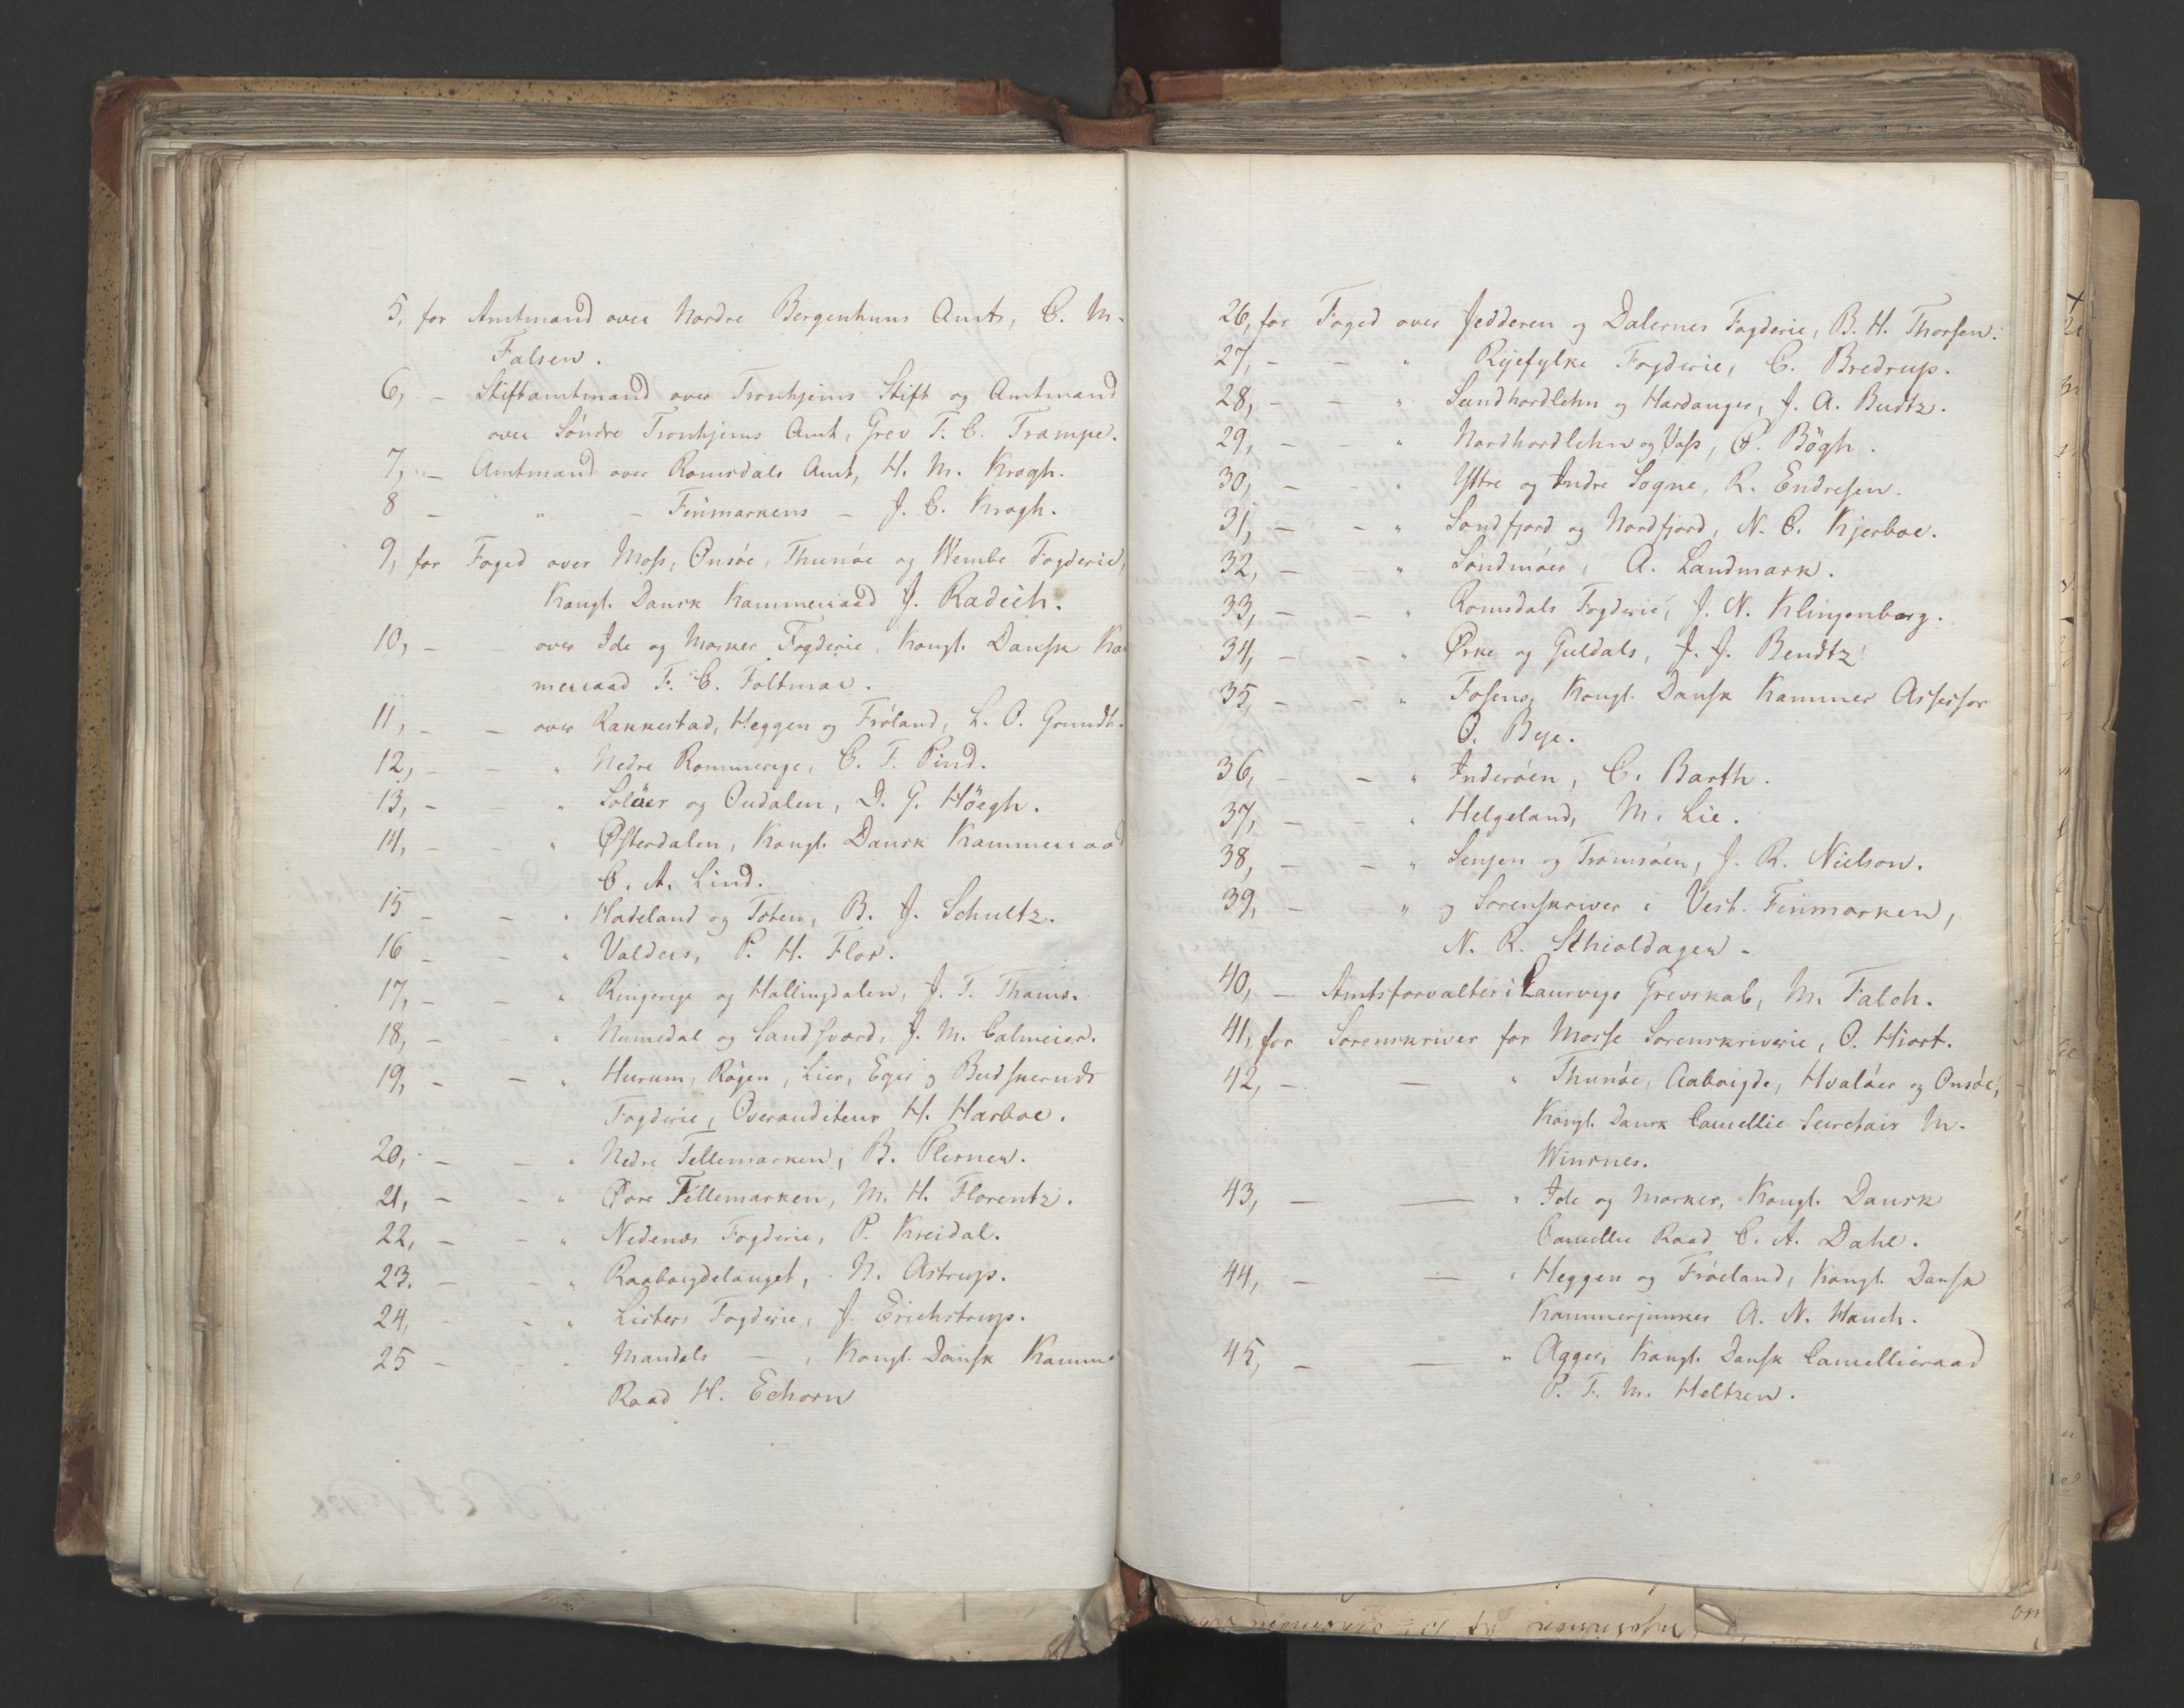 5, for Amtmand over Nordre Bergenhuus Amt, C. M.
Falsen.
6, – Stiftamtmand over Tronhjems Stift og Amtmand
over Söndre Tronhjems Amt, Grev F. C. Trampe.
7, – Amtmand over Romsdals Amt, H. M. Krogh.
8 – " – Finmarkens – J. C. Krogh.
9, for Foged over Moss, Onsöe, Thunöe og Wembe Fogderie,
Kongl. Dansk Kammerraad J. Radich.
10, – over Ide og Marker Fogderie, Kongl. Dansk Kam
merraad F. C. Foltmar.
11, – – over Rakkestad, Heggen og Fröland, L. O. Grundt.
12, – – " Nedre Rommerige, C. F. Pind.
13, – – " Solöer og Oudalen, D. G. Höegh.
14, – – " Østerdalen, Kongl. Dansk Kammerraad
C. A. Lind.
15 – – " Hadeland og Toten, B. J. Schultz.
16 – – " Valders, P. H. Flor.
17, – – " Ringerige og Hallingdalen, J. F. Thams.
18, – – " Numedal og Sandsværd, J. M. Calmeier.
19, – – " Hurum, Rögen, Lier, Eger og Budskeruds
Fogderie, Overauditeur H. Harboe.
20, – – " Nedre Tellemarken, B. Plesner.
21, – – " Øvre Tellemarken, M. H. Florentz.
22, – – " Nedenæs Fogderie, P. Kreidal.
23. – – " Raabøigdelauget, N. Astrup.
24, – – " Listers Fogderie, J. Erichstrup.
25 – " Mandals – , Kongl. Dansk Kamme
Raad H. Echorn
26, for Foged over Jedderen og Dalernes Fogderie, B. H. Thorsen.
27, – – " Ryefylke Fogderie, C. Bredrup.
28, – – " Sundhordlehn og Hardanger, J. A. Budtz.
29, – – " Nordhordlehn og Voss, O. Bögh.
30, – – " Yttre og Indre Sogne, R. Endresen.
31, – – " Sondfjord og Nordfjord, N. C. Kjerboe.
32, – " Söndmöer, A. Landmark.
33, – – " Romsdals Fogderie, J. N. Klingenberg.
34, – – " Ørke og Guldals, J. J. Bendtz.
35, – – " Fosens, Kongl. Dansk Kammer Assessor
O. Bye.
36, – – " Inderöen, C. Barth.
37, – – " Helgeland, M. Lie.
38, – – " Senjen og Tromsöen, J. R. Nielson.
39, – – " og Sorenskriver i Vest-Finmarken,
N. R. Schioldager –
40, – Amtsforvalter i Laurvigs Grevskab, M. Falch.
41, for Sorenskriver for Mosse Sorenskriverie, O. Hiort.
42, – – " Thunöe, Aabøigde, Hvalöer og Onsöe,
Kongl. Dansk Cancellie Secretair M.
Winsnes.
43, – – " Ide og Marker, Kongl. Dansk
Cancellie Raad C. A. Dahl.
44, – – " Heggen og Fröeland, Kongl. Dansk
Kammerjunker A. N. Hauch.
45, – – " Agger, Kongl. Dansk Cancellieraad
P. F. M. Heltzen.